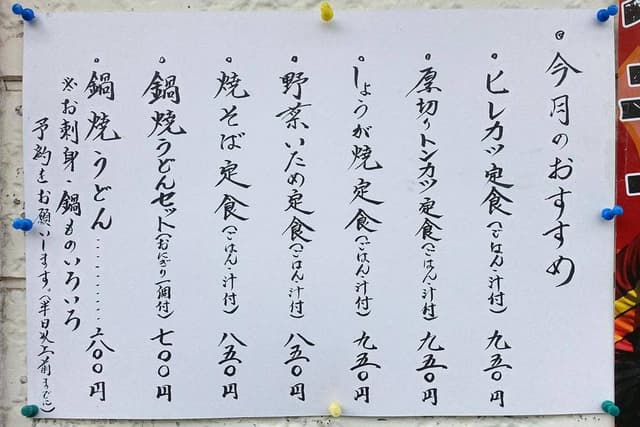 ◦今月のおすすめ
◦ヒレカツ定食(ごはん・汁付)九五〇円
◦厚切りトンカツ定食(ごはん・汁付)九五〇円
◦しょうが焼定食(ごはん・汁付)九五〇円
◦野菜いため定食(ごはん・汁付)八五〇円
◦焼そば定食(ごはん・汁付)八五〇円
◦鍋焼うどんセット(おにぎり一個付)七〇〇円
◦鍋焼うどん…………六〇〇円
※お刺身・鍋ものいろいろ
予約をお願いします。(半日以上前までに)